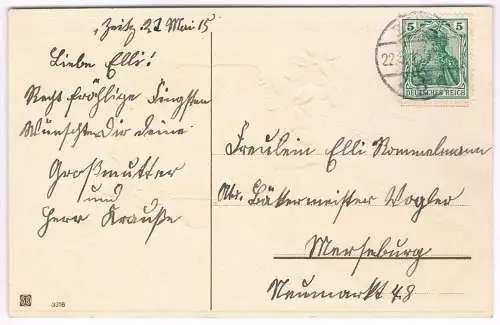 Zeitz 22 Mai 15
Liebe Elli!
Recht fröhlige Fingsten
Wünscht Dir deine
Großmutter
und
Herr Krauße
5 5
DEUTSCHES REICH
22.5
Freulein Elli Rommelmann
Adr. Bäkermeister Vogler
Merseburg
Neumarkt 48
3316